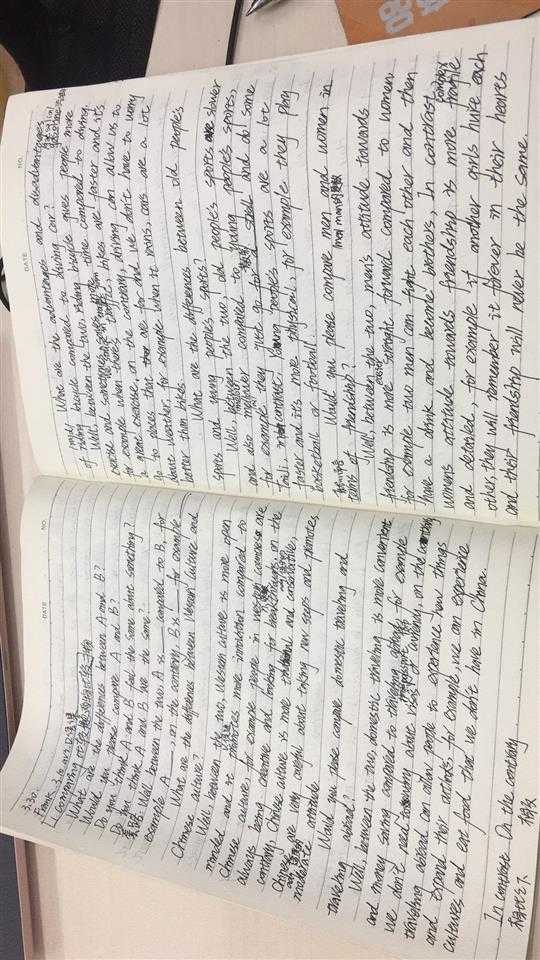 3.30.
Frank
1. Comparing
What are the differences between A and B?
Would you please compare A and B?
Do you think A and B feel the same about something?
Do you think A and B are the same?
Well, between the two, A is ___ compared to B, for
example A ___, on the contrary, B is ___ for example
What are the difference between Wesern culture and
Chinese culture?
Well, between the two, Wesern culture is more open
minded and it promotes more innovation compared to
Chinese culture, for example people in western countries are
always being creative and looking for new concepts, on the
contrary, Chinese culture is more and conservative,
are very careful about taking new steps and promotes
moderate attitude
Would you please compare domestic traveling and
traveling abroad?
Well, between the two, domestic traveling is more convenient
and money saving compared to traveling abroad for example
we don't need to worry about visas or currency, on the contrary
traveling abroad can allow people to experience new things
and expand their outlooks, for example, we can experience
cultures and eat food that we don't have in China.
In contrast On the contrary
相比之下 相反
DATE NO.
What are the advantages and disadvantages
of riding bicycle compared to driving car?
Well, between the two, riding bicycle gives people more
exercise and sometimes saves more time compared to driving.
for example when there's traffic, bikes are faster and it's
a nice exercise, on the contrary, driving can allow us to
go to places that are far and we don't have to worry
about weather, for example when it rains, cars are a lot
better than bikes
What are the differences between old people's
sports and young people's sports?
Well, between the two, old people's sports are slower
and also compared to young people's sports,
for example, they just go for a stroll and do some
Taichi. in contrast, young people's sports are a lot
faster and it's more physical, for example they play
basketball or football.
Would you please compare men and women in
terms of friendship?
Well, between the two, men's attitude towards
friendship is more straight forward compared to women
for example two men can fight each other and then
have a drink and become brothers, In contrast
women's attitude towards friendship is more fragile
and detailed, for example if another girls hurt each
other, they will remember it forever in their heares
and their friendship will never be the same.